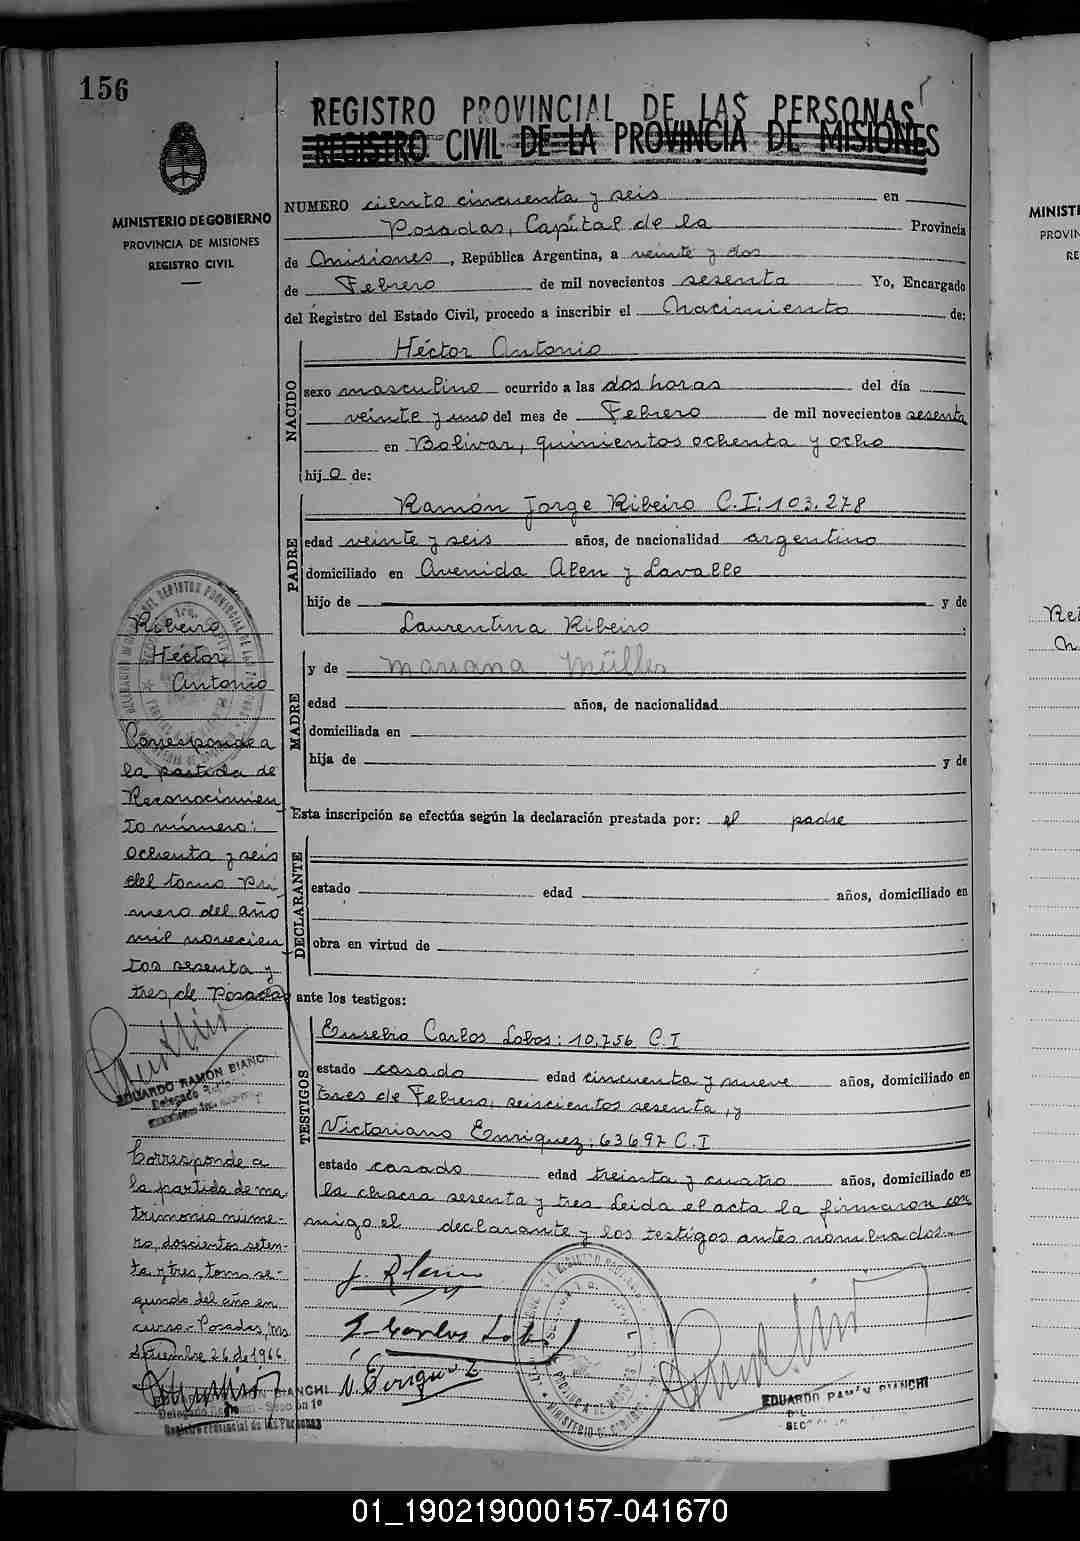 156
REGISTRO PROVINCIAL DE LAS PERSONAS
REGISTRO CIVIL DE LA PROVINCIA DE MISIONES
MINISTERIO DE GOBIERNO
PROVINCIA DE MISIONES
REGISTRO CIVIL
NUMERO ciento cincuenta y seis en
Posadas, Capital de la Provincia
de Misiones, República Argentina, a veinte y dos
de Febrero de mil novecientos sesenta Yo, Encargado
del Registro del Estado Civil, procedo a inscribir el Nacimiento de:
NACIDO
Héctor Antonio
sexo masculino ocurrido a las dos horas del día
veinte y uno del mes de Febrero de mil novecientos sesenta
en Bolivar, quinientos ochenta y ocho
hijo de:
PADRE
Ramón Jorge Ribeiro C.I: 103.278
edad veinte y seis años, de nacionalidad argentino
domiciliado en Avenida Alen y Lavalle
hijo de y de
Laurentina Ribeiro
MADRE
y de Mariana Müller
edad años, de nacionalidad
domiciliada en
hija de y de
Esta inscripción se efectúa según la declaración prestada por: el padre
DECLARANTE
estado edad años, domiciliado en
obra en virtud de
ante los testigos:
TESTIGOS
Eusebio Carlos Lobos: 10.756 C.I
estado casado edad cincuenta y nueve años, domiciliado en
tres de Febrero, seiscientos sesenta, y
Victoriano Enriquez: 63697 C.I
estado casado edad treinta y cuatro años, domiciliado en
la chacra sesenta y tres Leida el acta la firmaron con
migo el declarante y los testigos antes nombrados.
J. Carlos Lobos
V. Enriquez
EDUARDO RAMÓN BIANCHI
Ribeiro
Héctor
Antonio
Corresponde a
la partida de
Reconocimien
to número:
ochenta y seis
del tomo Pri
mero del año
mil novecien
tos sesenta y
tres, de Posadas
EDUARDO RAMÓN BIANCHI
Corresponde a
la partida de ma
trimonio núme-
ro, doscientos seten-
ta y tres, tomo se-
gundo del año en
curso - Posadas, Ms
Setiembre 26 de 1966.
BIANCHI
Registro Provincial de las Personas
MINISTE
PROVIN
RE
01_190219000157-041670